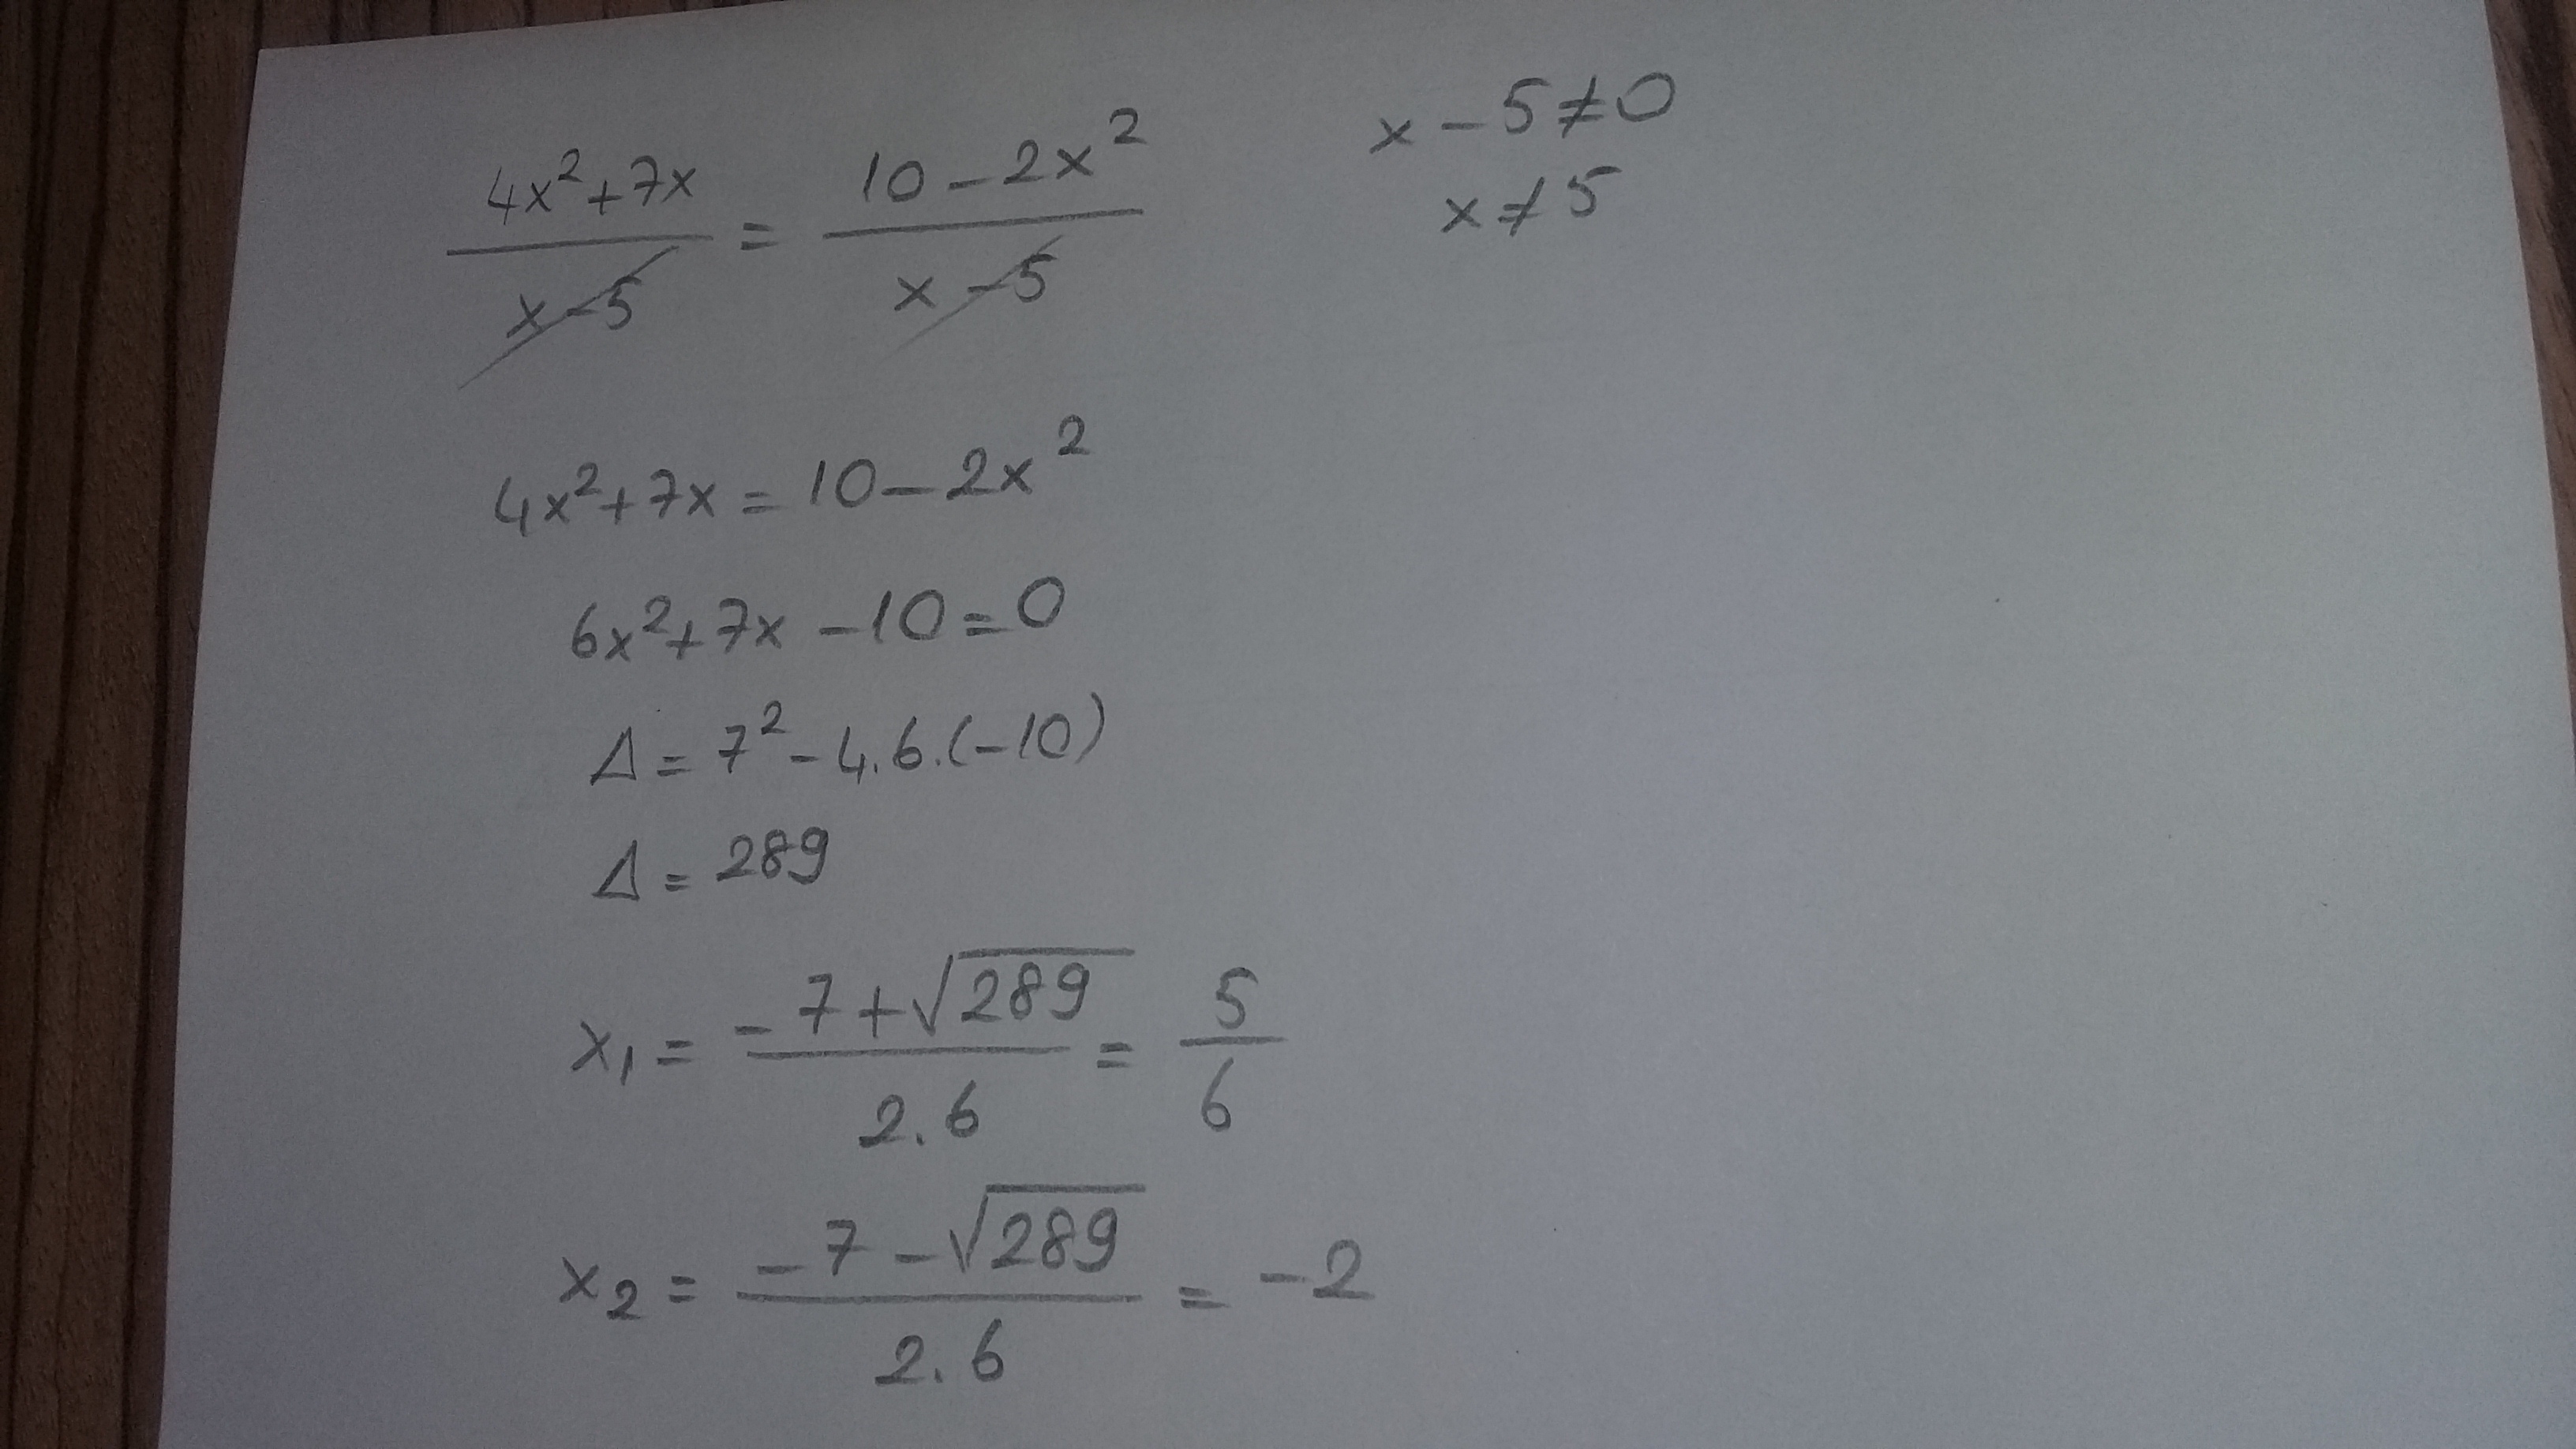 4x²+7x / x-5 = 10-2x² / x-5
x-5≠0
x≠5
4x²+7x=10-2x²
6x²+7x-10=0
Δ=7²-4.6.(-10)
Δ=289
x₁= -7+√289 / 2.6 = 5/6
x₂= -7-√289 / 2.6 = -2